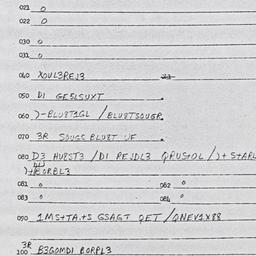 021 0
022 0
030 0
031 0
040 XOUL3REJ3
050 DI GE5LSUXT.
060 )-BLU8T1GL / BLU8TSOUGP.
070 3R SOUGG BLU8T UF.
080 D3 HU8ST3 / DI PEJDL3 QRUS+OL / )+ S+ARL
)+BORBL3
081 0 082 0
083 0 084 0
090 1MS+TA.+S GSAGT QET / QNEV1X88
3R
100 B3GOMDI BORPL3